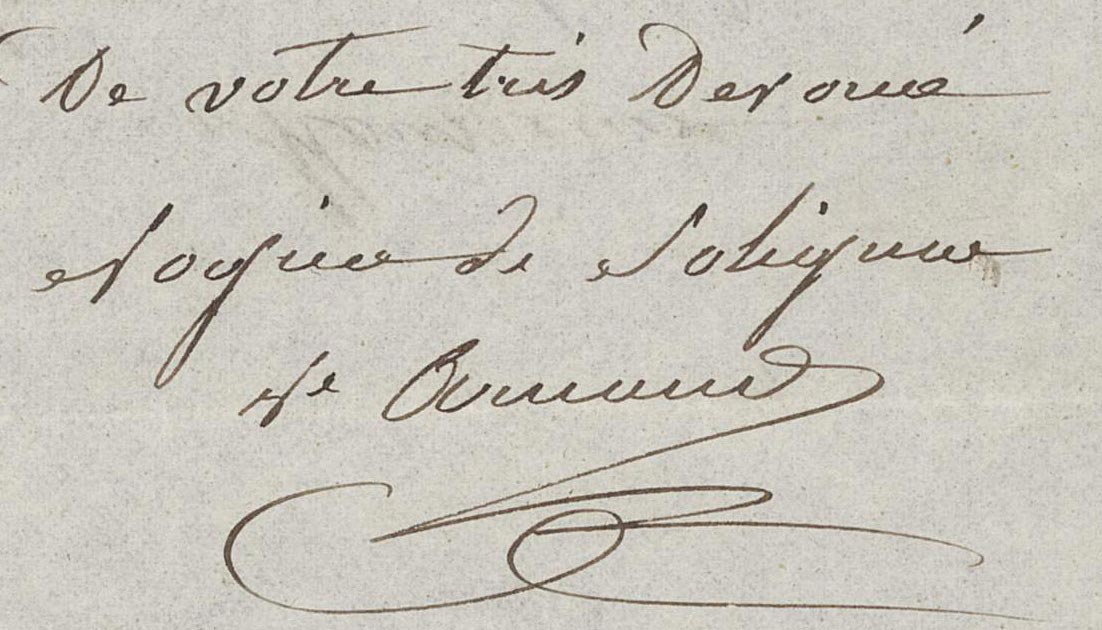 De votre très Devoué
Nogier de Solignac
Ve Armand